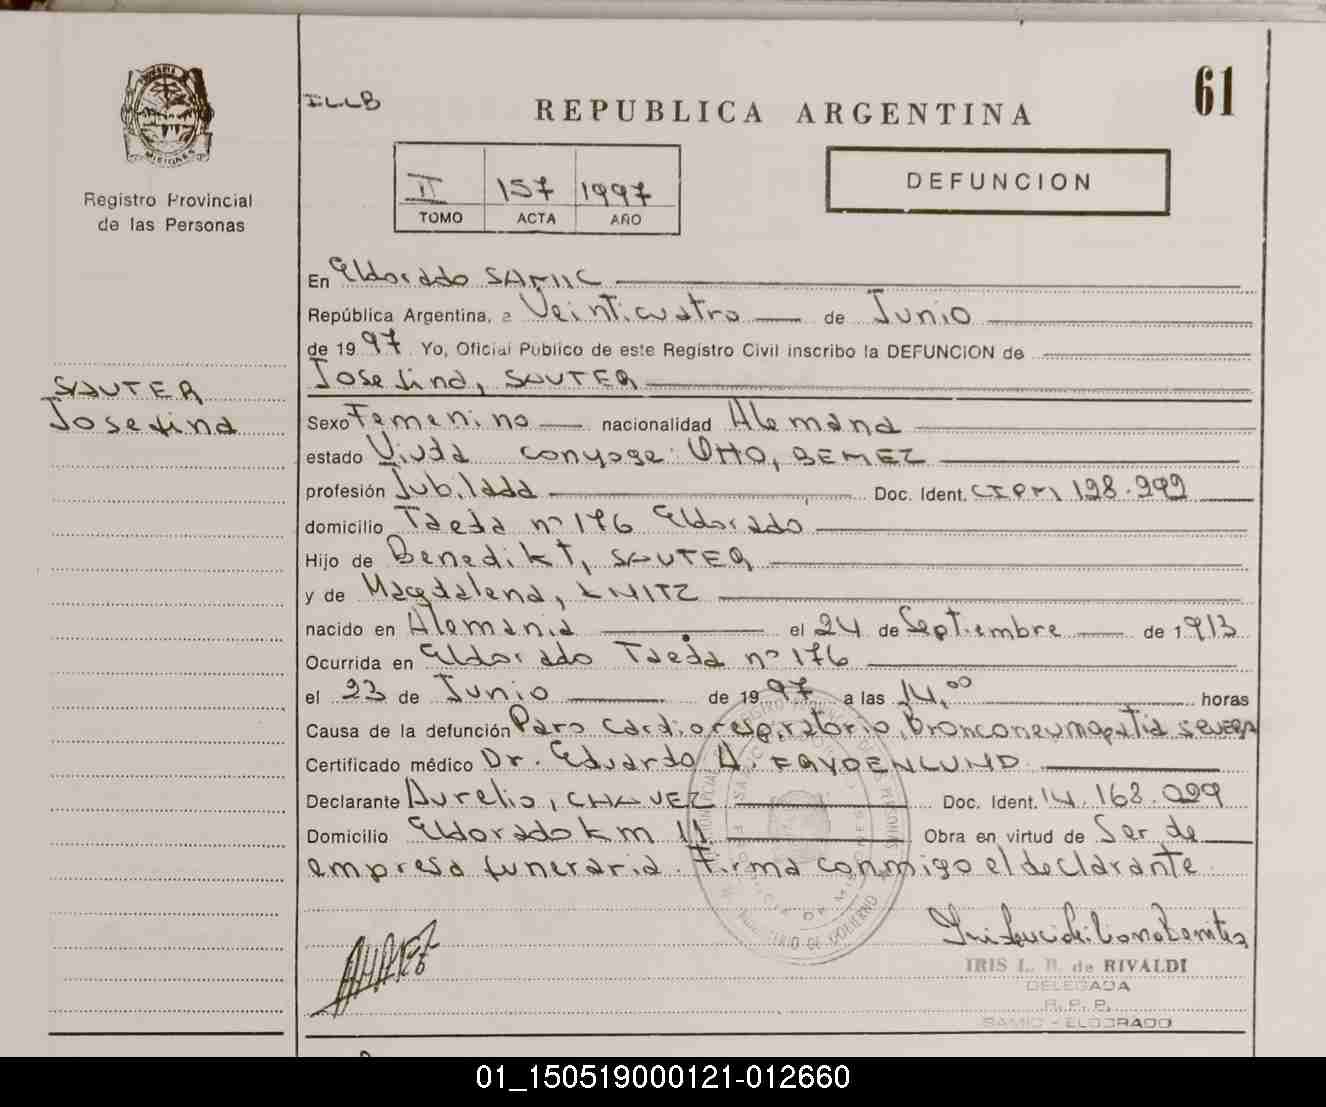 MISIONES
Registro Provincial
de las Personas
SAUTER
Josefina
ILLB
REPUBLICA ARGENTINA
61
II 157 1997
TOMO ACTA AÑO
DEFUNCION
En Eldorado SAMIC
República Argentina, a Veinticuatro de Junio
de 1997 Yo, Oficial Público de este Registro Civil inscribo la DEFUNCION de
Josefina, SAUTER
Sexo Femenino nacionalidad Alemana
estado Viuda conyoge: Otto, BEMEZ
profesión Jubilada Doc. Ident. CIPM 198.292
domicilio Taeda nº 176 Eldorado
Hijo de Benedikt, SAUTER
y de Magdalena,
nacido en Alemania el 24 de Septiembre de 1913
Ocurrida en Eldorado Taeda nº 176
el 23 de Junio de 1997 a las 14,00 horas
Causa de la defunción Paro cardiorespiratorio, Bronconeumopatia severa
Certificado médico Dr. Eduardo A. FRYDENLUND
Declarante Aurelio, CHAVEZ Doc. Ident. 14.168.029
Domicilio Eldorado km 11 Obra en virtud de Ser de
empresa funeraria. Firma conmigo el declarante
IRIS L. B. de RIVALDI
DELEGADA
R. P. P.
SAMIC - ELDORADO
01_150519000121-012660